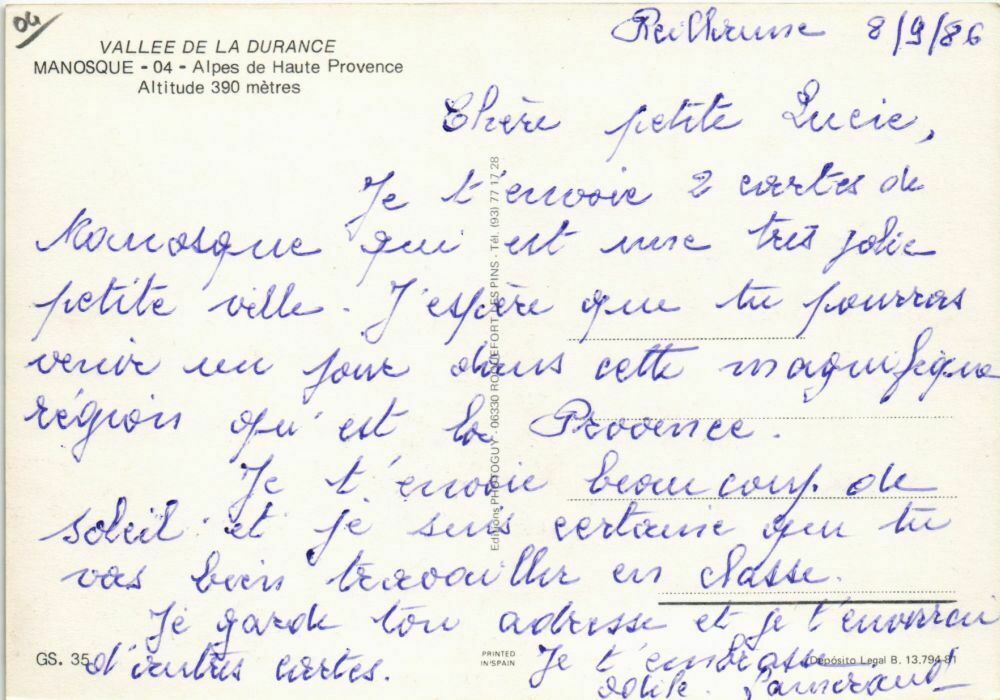 04
VALLEE DE LA DURANCE
MANOSQUE - 04 - Alpes de Haute Provence
Altitude 390 mètres
Reillanne 8/9/86
Chère petite Lucie,
Je t'envoie 2 cartes de
Manosque qui est une très jolie
petite ville. J'espère que tu pourras
venir un jour dans cette magnifique
région qu'est la Provence.
Je t'envoie beaucoup de
soleil et je suis certaine que tu
vas bien travailler en classe.
Je garde ton adresse et je t'enverrai
d'autres cartes.
Je t'embrasse
Odile
Editions PHOTOGUY - 06330 ROQUEFORT LES PINS - Tél. (93) 77 17 28
GS. 35
PRINTED
IN SPAIN
Depósito Legal B. 13.794-81